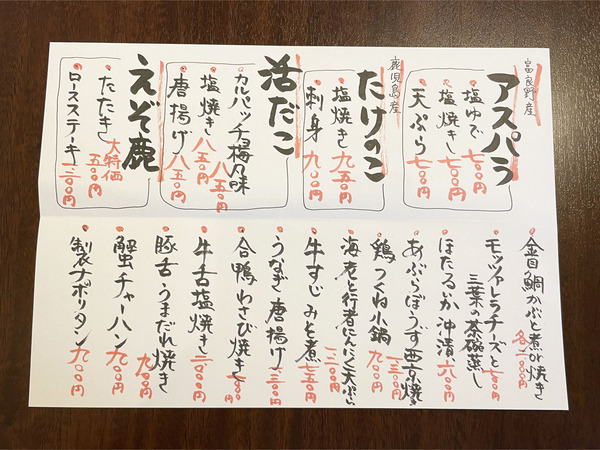 富良野産
アスパラ
塩ゆで 七〇〇円
塩焼き 七〇〇円
天ぷら 七〇〇円
鹿児島産
たけのこ
塩焼き 九五〇円
刺身 九〇〇円
活だこ
カルパッチョ梅肉味 八五〇円
塩焼き 八五〇円
唐揚げ 八五〇円
えぞ鹿
たたき 大特価 五〇〇円
ロースステーキ
金目鯛かぶと煮or焼き
モッツァレラチーズと
三葉の茶碗蒸し
ほたるいか沖漬 六〇〇円
あぶらぼうず西京焼
鶏つくね小鍋 九〇〇円
海老と行者にんにく天ぷら
牛すじみそ煮 七五〇円
うなぎ唐揚げ 一三〇〇円
合鴨わさび焼き
牛舌塩焼き 二〇〇〇円
豚舌うまだれ焼き 九〇〇円
蟹チャーハン 九〇〇円
製ナポリタン 九〇〇円